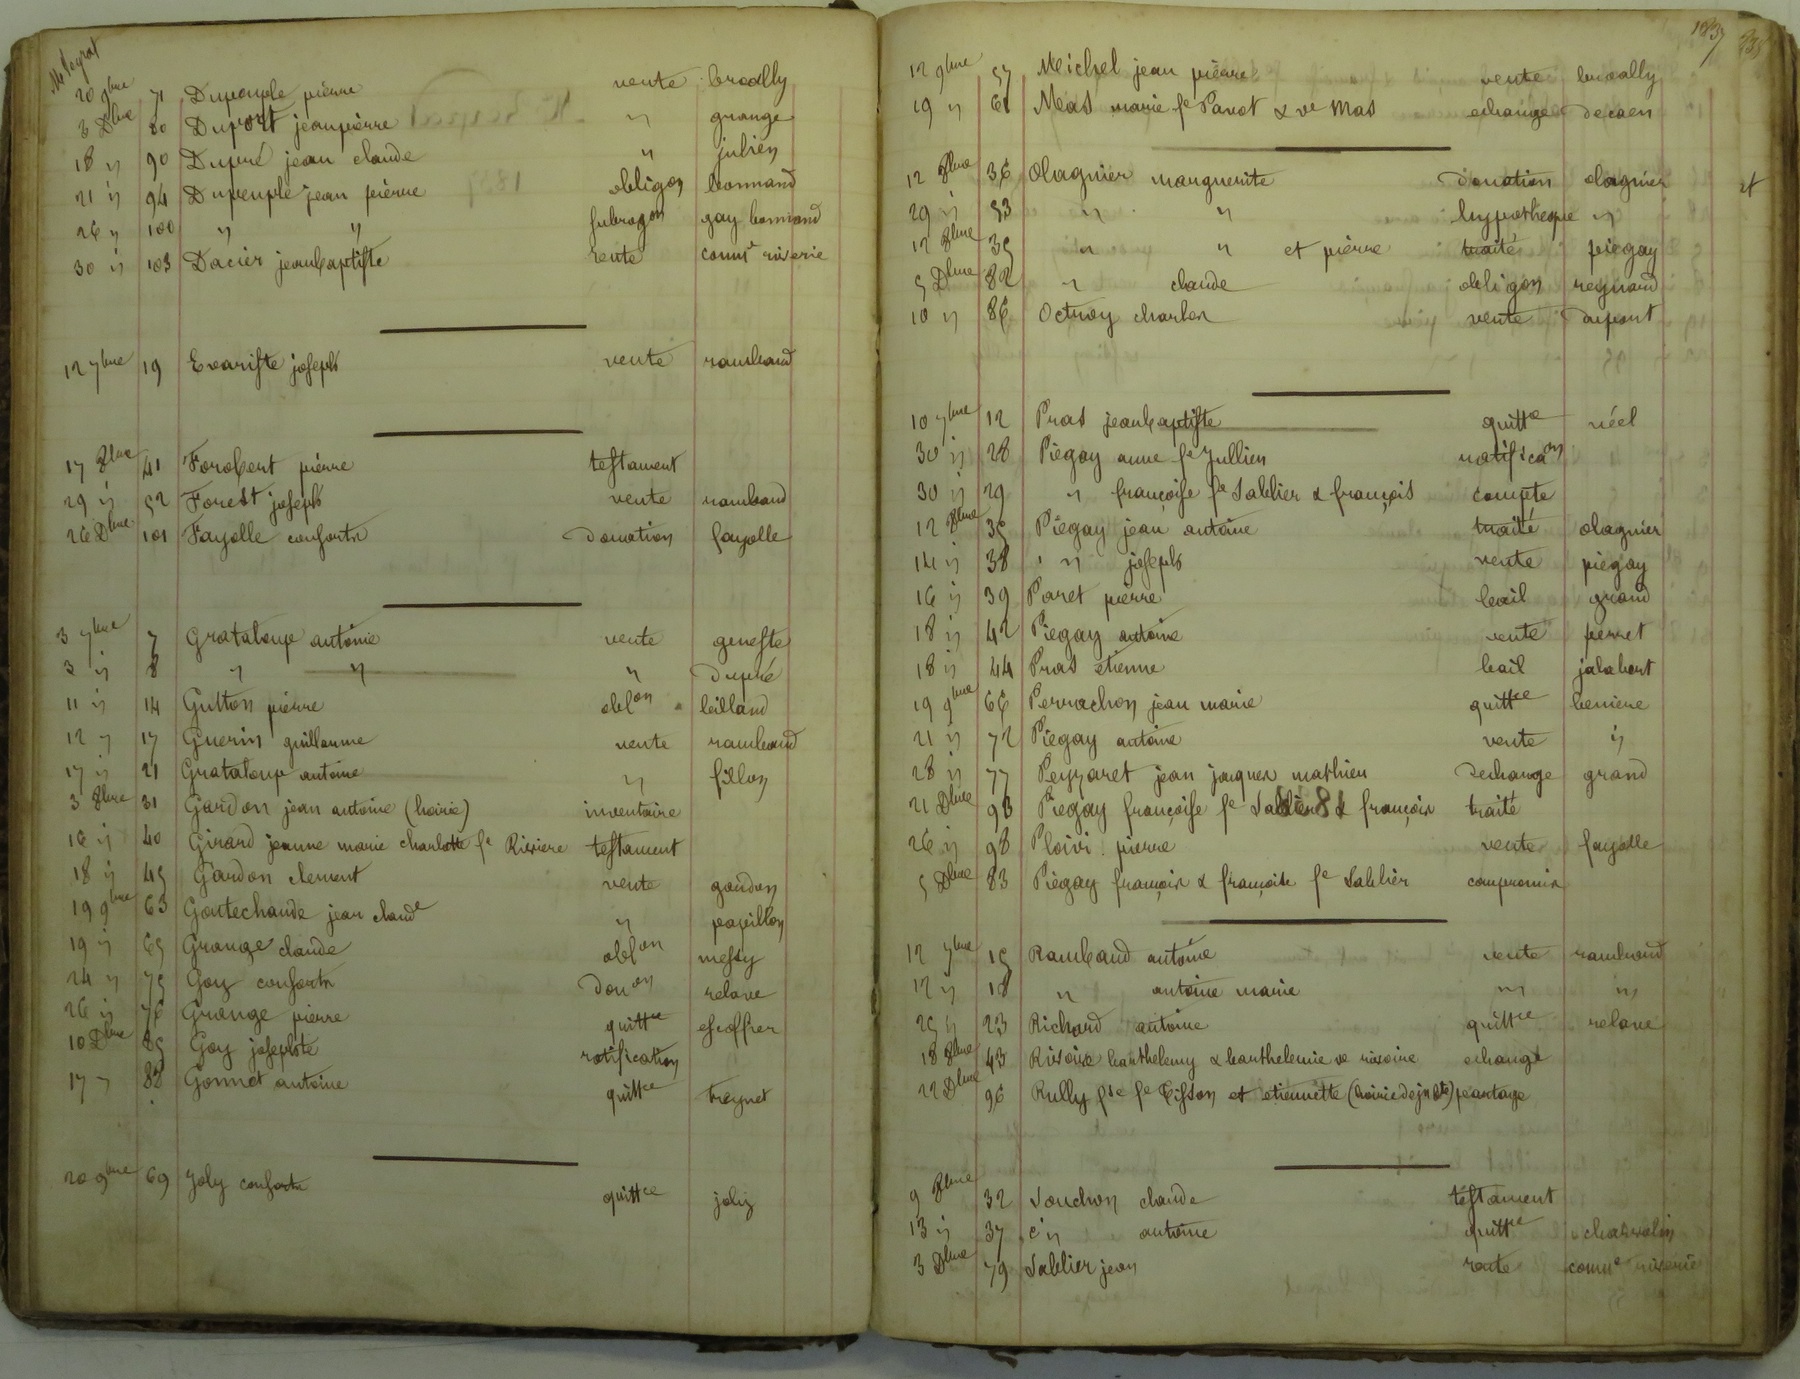 Me Peyrat
20 9bre 71 Dupeuple pierre vente broally
3 Dbre 80 Duport jeanpierre " grange
18 " 90 Dupré jean claude " julien
21 " 94 Dupeuple jean pierre obligon bonnand
26 " 100 " " subrogon gay bonnand
30 " 103 Dacier jeanbaptiste vente comne riverie
12 7bre 19 Evariste joseph vente rambaud
17 8bre 41 Forobert pierre testament
29 " 52 Forest joseph vente rambaud
26 Dbre 101 Fayolle consorts donation fayolle
3 7bre 7 Grataloup antoine vente geneste
3 " 8 " " " Dupré
11 " 14 Gutton pierre oblon billand
12 " 17 Guerin guillaume vente rambaud
17 " 21 Grataloup antoine " fillon
3 8bre 31 Gardon jean antoine (hoirie) inventaire
16 " 40 Girard jeanne marie charlotte fe Riviere testament
18 " 45 Gardon clement vente gardon
19 9bre 63 Goutechaude jean claude " papillon
19 " 65 Grange claude oblon messy
24 " 75 Goy consorts Donon relave
26 " 76 Grange pierre quittce escoffier
10 Dbre 85 Goy josephte ratification
17 " 88 Gonnet antoine quittce treynet
20 9bre 69 Joly consorts quittce joly
1837
12 9bre 57 Meichel jean pierre vente broally
19 " 61 Mas marie fe Pavot & ve Mas echange decaen
12 8bre 36 Olagnier marguerite Donation olagnier
29 " 53 " " hypotheque "
12 8bre 35 " " et pierre traité piegay
5 Dbre 82 " claude obligon reynard
10 " 86 Octroy charles vente dupont
10 7bre 12 Pras jeanbaptiste quittce néel
30 " 28 Piegay anne fe Jullien notificaon
30 " 29 " françoise fe Sablier & françois compte
12 8bre 35 Piegay jean antoine traité olagnier
14 " 38 " joseph vente piegay
16 " 39 Paret pierre bail grand
18 " 42 Piegay antoine vente perret
18 " 44 Pras etienne bail jalabert
19 9bre 66 Perrachon jean marie quittce
21 " 72 Piegay antoine vente "
28 " 77 Peyzaret jean jacques mathieu Dechange grand
21 Dbre 93 Piegay françoise fe Sablier & françois traité
26 " 98 Ploivi pierre vente fayolle
5 Dbre 83 Piegay françois & françoise fe Sablier compromis
12 7bre 15 Rambaud antoine vente rambaud
12 " 18 " antoine marie " "
25 " 23 Richard antoine quittce relave
18 8bre 43 Rivoire barthelemy & barthelemie ve rivoire echange
22 Dbre 96 Rully fse fe Tisson et etiennette (hoirie de jn bte) partage
9 8bre 32 Souchon claude testament
13 " 37 " antoine quittce charvolin
3 Dbre 79 Sablier jean vente comne riverie